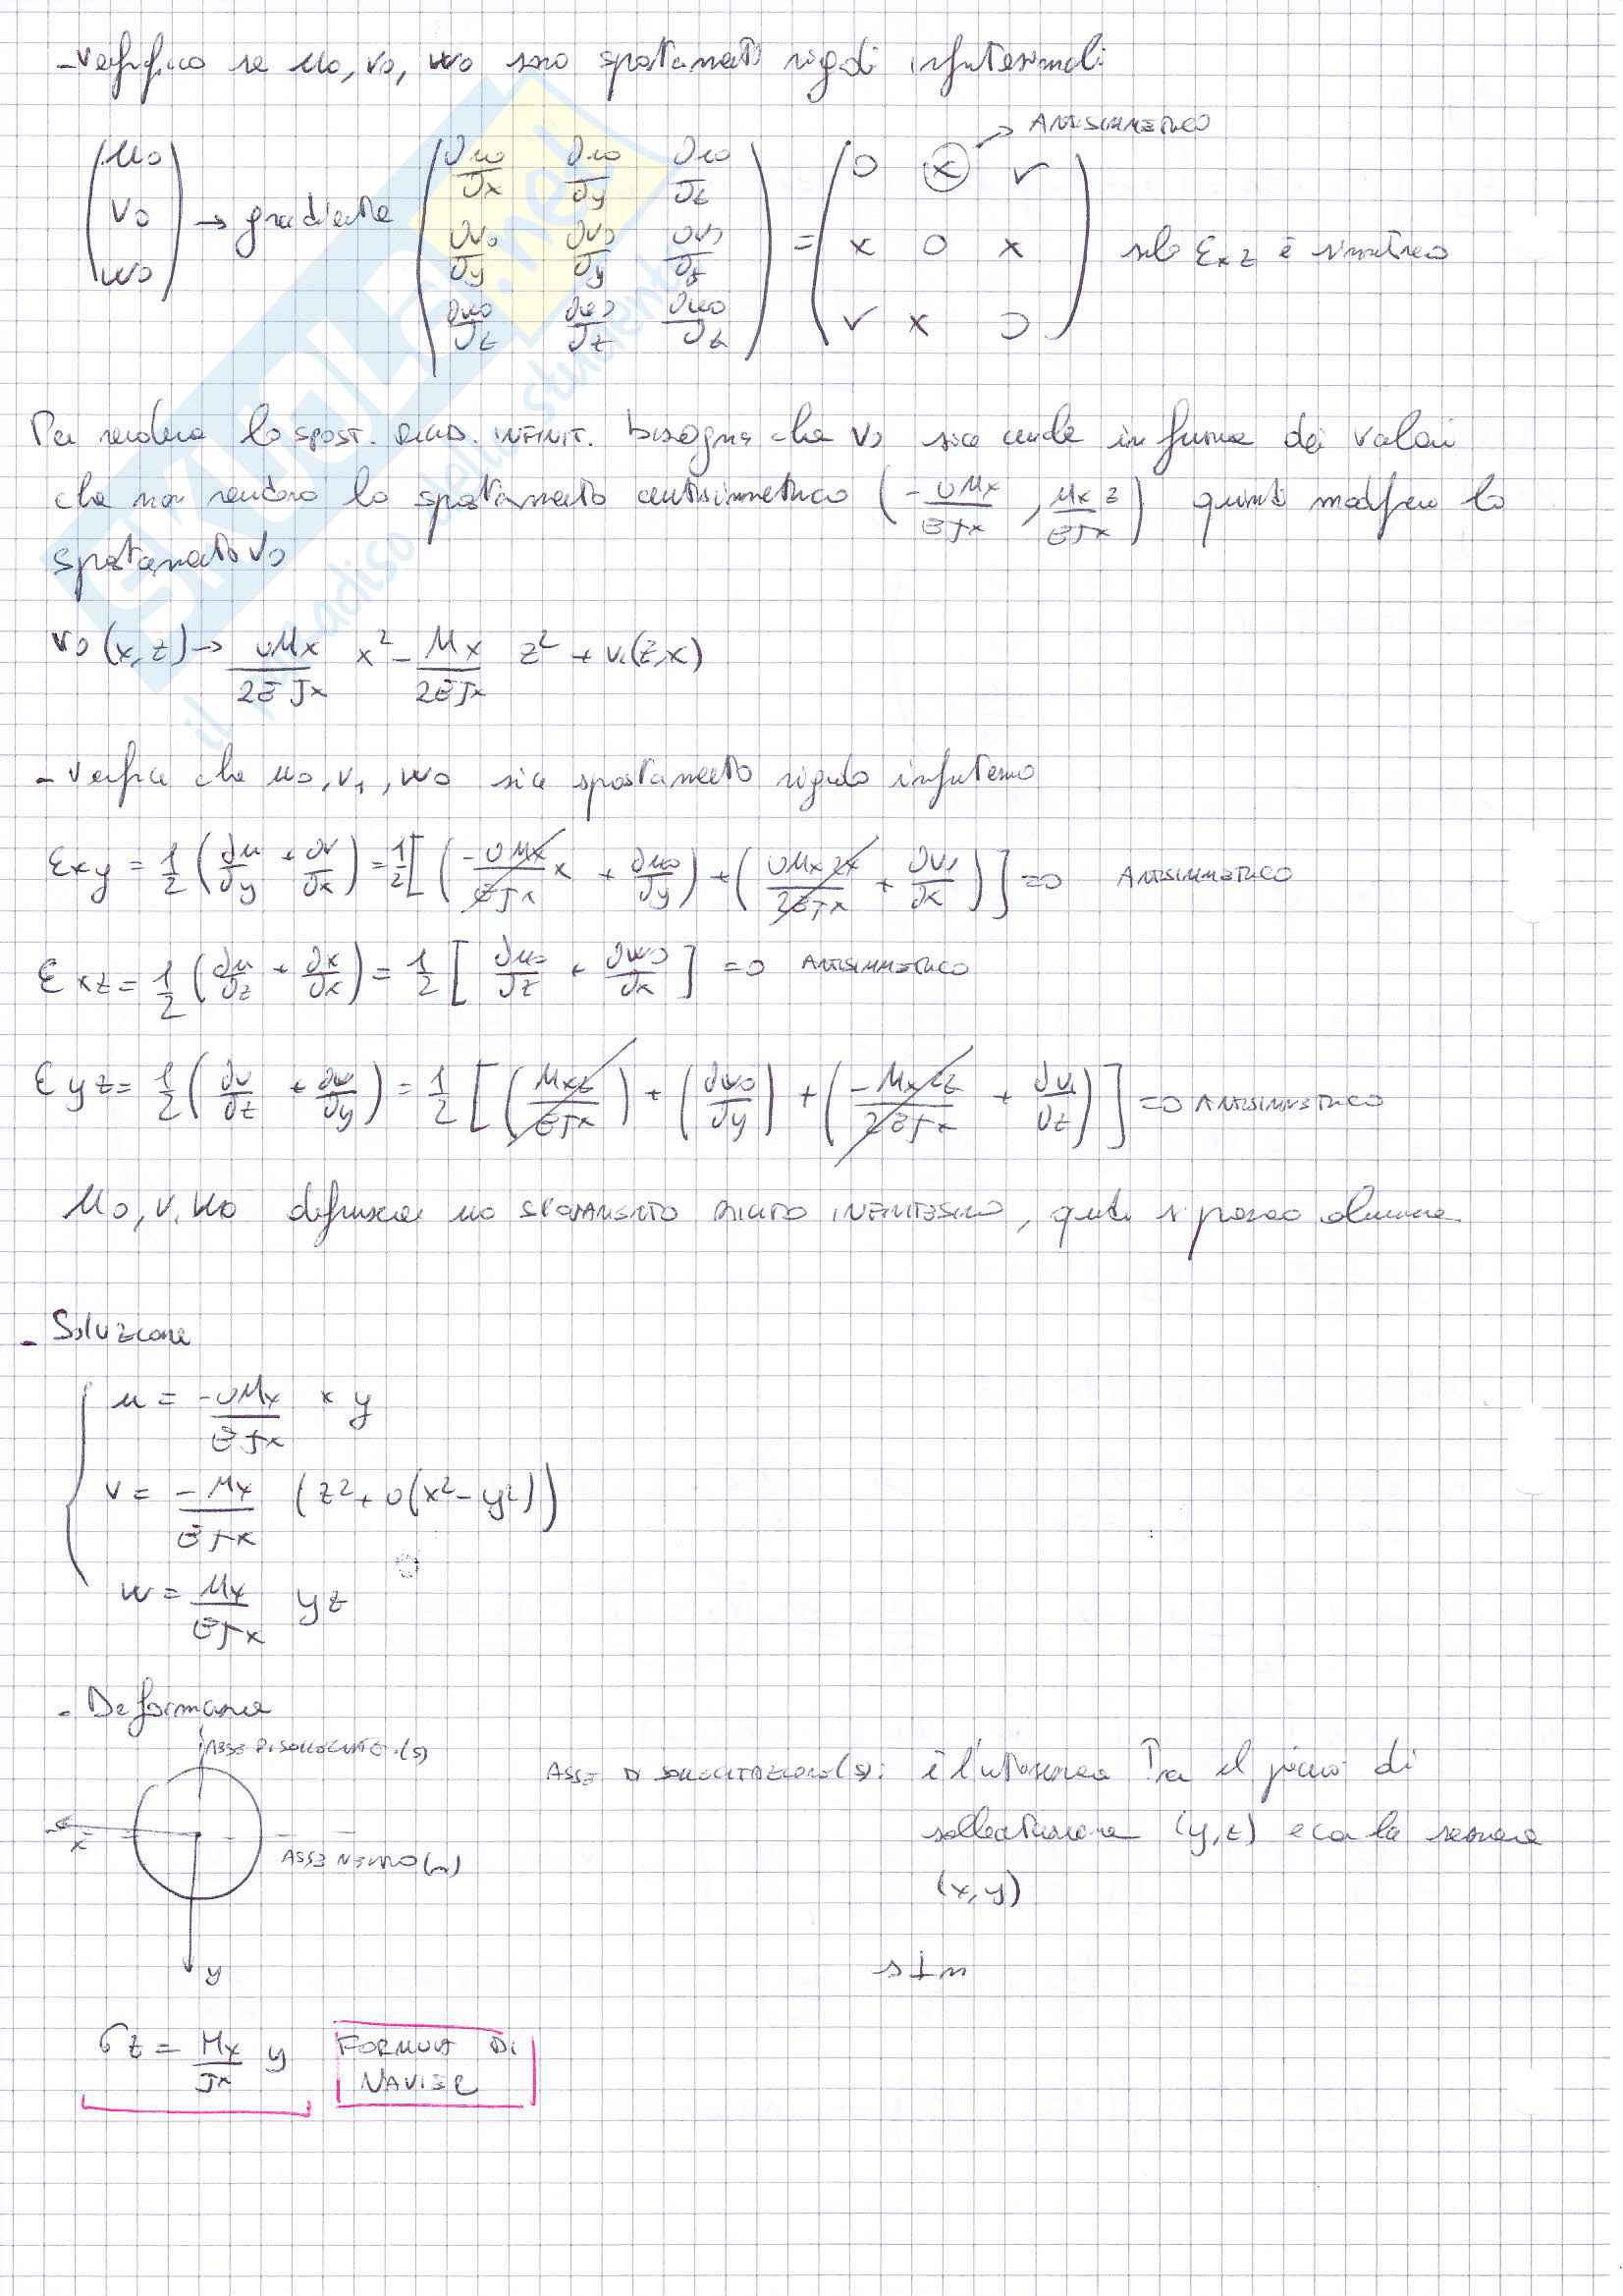 - Verifico se u₀, v₀, w₀ sono spostamenti rigidi infinitesimali
(u₀ v₀ w₀) → gradiente (∂u₀/∂x ∂u₀/∂y ∂u₀/∂z ; ∂v₀/∂y ∂v₀/∂y ∂v₀/∂z ; ∂w₀/∂z ∂w₀/∂z ∂w₀/∂z) = (0 x v ; x 0 x ; v x 0) → ANTISIMMETRICO
solo Exz è simmetrico
Per rendere lo SPOST. RIGID. INFINIT. bisogna che v₀ sia anche in funzione dei valori
che non rendono lo spostamento antisimmetrico (-υMx/EJx, Mx z/EJx) quindi modifico lo
spostamento v₀
v₀(x,z) → υMx/2EJx x² - Mx/2EJx z² + v₁(z,x)
- Verifica che u₀, v₁, w₀ sia spostamento rigido infinitesimo
Exy = 1/2 (∂u/∂y + ∂v/∂x) = 1/2 [(-υMx/EJx x + ∂u₀/∂y) + (υMx 2x/2EJx + ∂v₁/∂x)] = 0 ANTISIMMETRICO
Exz = 1/2 (∂u/∂z + ∂x/∂x) = 1/2 [∂u₀/∂z + ∂w₀/∂x] = 0 ANTISIMMETRICO
Eyz = 1/2 (∂v/∂z + ∂w/∂y) = 1/2 [(Mx z/EJx) + (∂w₀/∂y) + (-Mx 2z/2EJx + ∂v₁/∂z)] = 0 ANTISIMMETRICO
u₀, v₁ w₀ definisce uno SPOSTAMENTO RIGIDO INFINITESIMO, quindi si possono eliminare
- Soluzione
u = -υMx/EJx x y
v = -Mx/EJx (z² + υ(x² - y²))
w = Mx/EJx yz
- Deformazione
ASSE DI SOLLECITAZ. (s)
x
ASSE NEUTRO (n)
y
ASSE DI SOLLECITAZIONE (s): è l'intersezione tra il piano di
sollecitazione (y,z) e con la sezione
(x,y)
s ⊥ n
σz = Mx/Jx y
FORMULA DI
NAVIER
SKUOLA.net
il paradiso dello studente